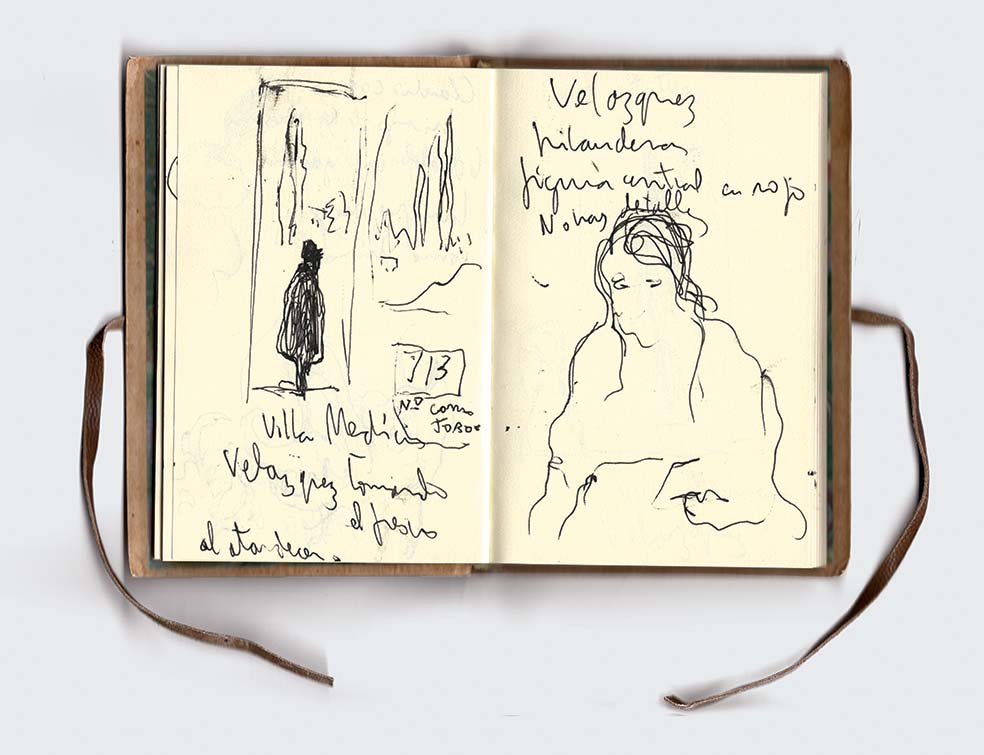 713
Nº como
TOROS
Villa Medicis
Velazquez tomando
el fresco
al atardecer.
Velazquez
hilanderas
figura central en rojo
No hay detalles